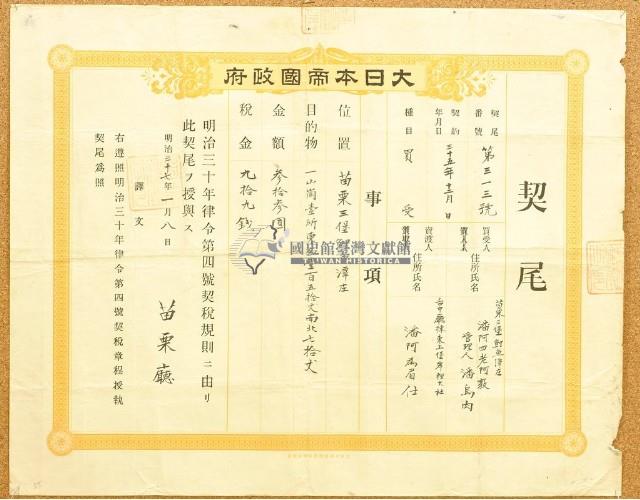 大日本帝國政府
契尾
契尾番號
第三一三號
契約年月日
三十五年十二月 日
種目
買受
買受人
住所氏名
苗栗三堡
潘阿四老阿敦
管理人 潘烏肉
賣渡人
住所氏名
潘阿
事項
位置 苗栗三堡鯉魚潭庄
目的物 一山崗壹所東西壹百五拾丈南北七拾丈
金額 參拾參圓
稅金 九拾九錢
明治三十年律令第四號契稅規則ニ由リ
此契尾ヲ授與ス
明治三十七年一月八日
苗栗廳
譯文
右遵照明治三十年律令第四號契稅章程授執
契尾爲照
國史館臺灣文獻館
TAIWAN HISTORICA